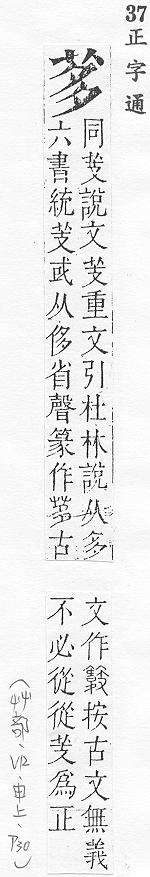 37
正字通
茤
同芰說文芰重文引杜林說从多
六書統芰或从侈省聲篆作茤古
文作䕍按古文無義
不必從從芰爲正
(艸部、1/2、申上、P30)